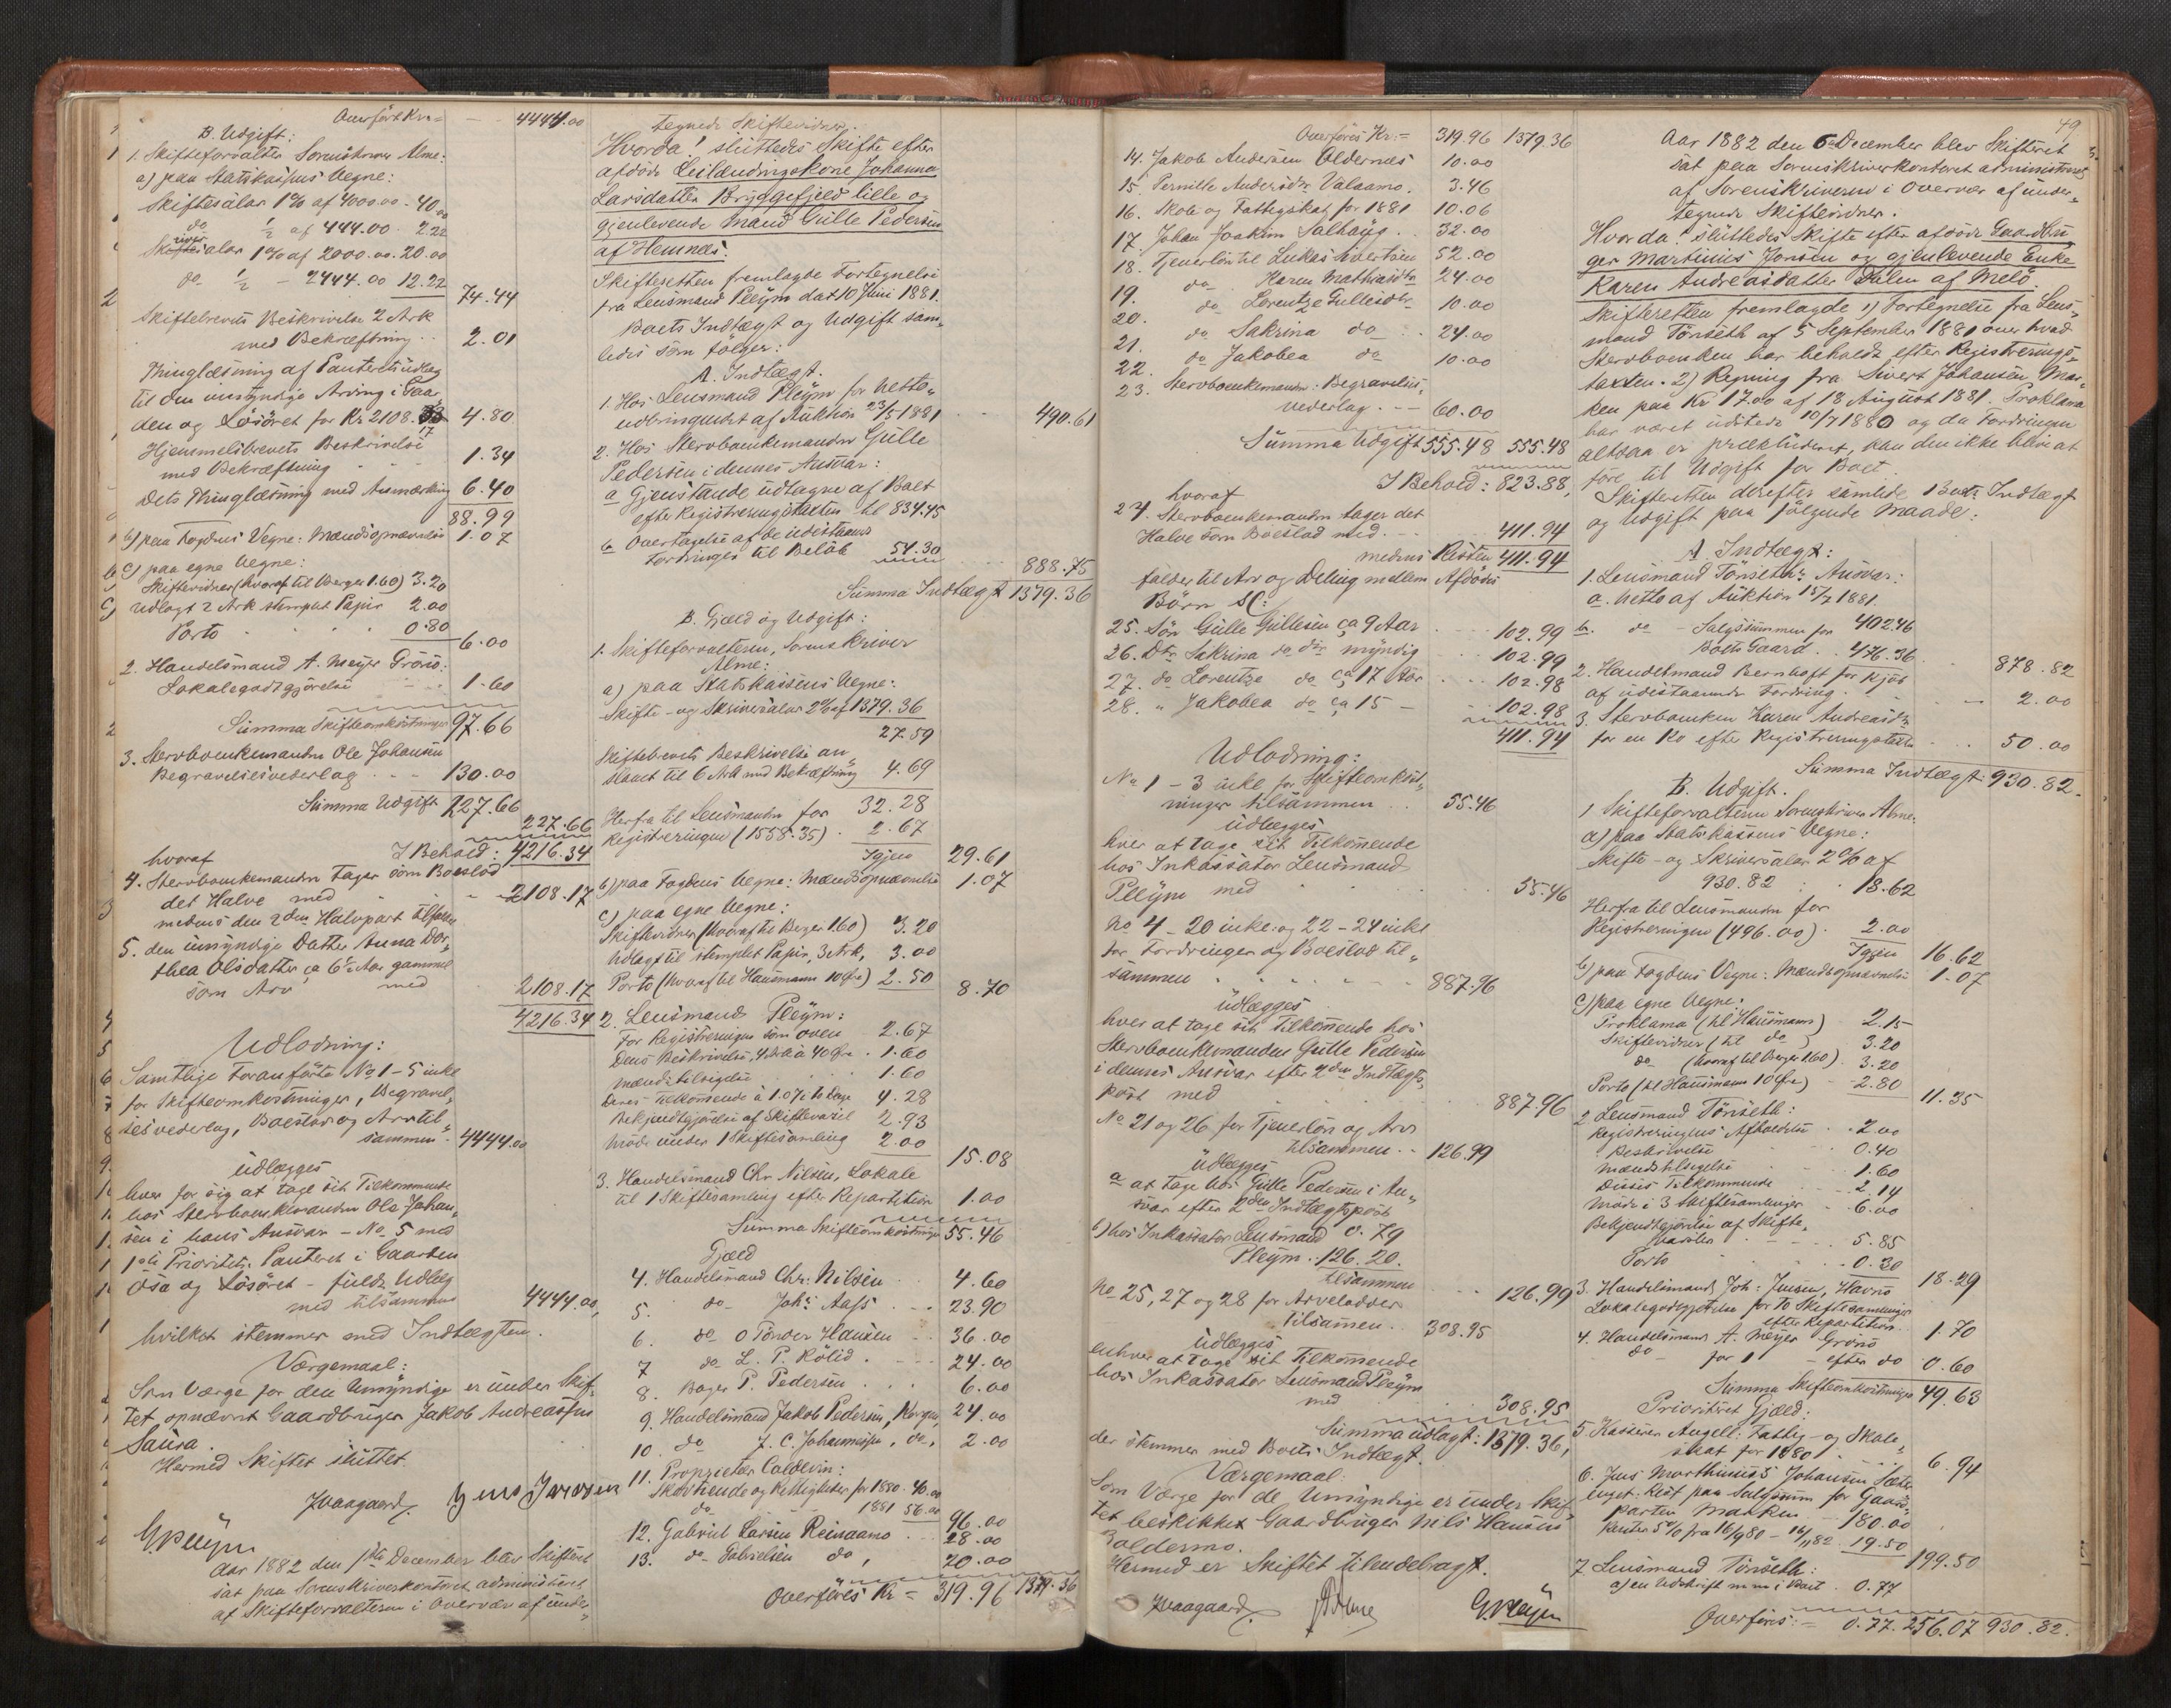 Overført Kr = 4444.00
B. Udgift:
1. Skifteforvalter Sorenskriver Alme:
a) paa Statskassens Vegne:
Skiftesalær 1% af 4000.00 - 40.00
do ½ af 444.00 2.22
Skriversalær 1% af 2000.00. 20.00
do ½ - 2444.00 12.22
74.44
Skiftebrevets Beskrivelse 2 Ark
med Bekræftning .. 2.01
Thinglæsning af Panteretsudlæg
til den umyndige Arving i Gaa-
den og Løsøret for Kr 2108.17 4.80
Hjemmelsbrevets Beskrivelse
med Bekræftning 1.34
Dets Thinglæsning med Anmærkning 6.40
88.99
b) paa Fogdens Vegne: Mændsopnævnelse 1.07
c) paa egne Vegne:
Skiftevidner (hvoraf til Berger 1.60) 3.20
Udlagt 2 Ark stemplet Papir 2.00
Porto . . . 0.80
6.00
2. Handelsmand A. Meyer Grønø:
Lokalegodtgjørelse - - 1.60
Summa Skifteomkostninger 97.66
3. Stervboenkemanden Ole Johansen
Begravelsesvederlag . . - 130.00
Summa Udgift 227.66
227.66
I Behold: 4216.34
hvoraf
4. Stervboenkemanden tager som Boeslod
det Halve med - 2108.17
medens den 2den Halvpart tilfalder
5. den umyndige Datter Anna Dor-
thea Olsdatter ca 6½ Aar gammel
som Arv med 2108.17
4216.34
Udlodning:
Samtlige foranførte No 1 - 5 inkl
for Skifteomkostninger, Begravel-
sesvederlag, Boeslod og Arv til-
sammen . 4444.00
udlægges
hver for sig at tage sit Tilkommende
hos Stervboenkemanden Ole Johan-
sen i hans Ansvar - No 5 med
1ste Prioritets Panteret i Gaarden
Osa og Løsøret - fuldt Udlæg
med tilsammen 4444.00,
hvilket stemmer med Indtægten.
Værgemaal:
Som Værge for den Umyndige er under Skif-
tet opnævnt Gaardbruger Jakob Andreassen
Saura.
Hermed Skiftet sluttet.
JVaagaard. Jens Iversen
G. Pleym
Aar 1882 den 1ste December blev Skifteret
sat paa Sorenskriverkontoret administreret
af Skifteforvalteren i Overvær af under-
tegnede Skiftevidner.
Hvorda! sluttedes Skifte efter
afdøde Leilændingskone Johanna
Larsdatter Bryggefjeld lille og
gjenlevende Mand Gulle Pedersen
af Hemnes.
Skifteretten fremlagde Fortegnelse
fra Lensmand Pleym dat 10 Juni 1881.
Boets Indtægt og Udgift sam-
ledes som følger:
A. Indtægt.
1. Hos Lensmand Pleym for Netto-
udbringendet af Auktion 23/5 1881 . . . 490.61
2. Hos Stervboenkemanden Gulle
Pedersen i dennes Ansvar:
a Gjenstande udtagne af Boet
efter Registreringstaxten til 834.45
b Overtagelse af de udestaaende
Fordringer til Beløb 54.30
888.75
Summa Indtægt 1379.36
B. Gjæld og Udgift:
1. Skifteforvalteren, Sorenskriver
Alme:
a) paa Statskassens Vegne:
Skifte- og Skriversalær 2% af 1379.36
27.59
Skiftebrevets Beskrivelse an-
slaaet til 6 Ark med Bekræftning 4.69
32.28
Herfra til Lensmanden for
Registreringen (1558.35) . 2.67
Igjen 29.61
b) paa Fogdens Vegne: Mændsopnævnelse 1.07
c) paa egne Vegne:
Skiftevidner (hvoraf til Berger 1.60) 3.20
Udlagt til stemplet Papir, 3 Ark, 3.00
Porto (hvoraf til Hausmann 10 Øre) 2.50
8.70
2. Lensmand Pleym:
For Registreringen som oven 2.67
Dens Beskrivelse, 4 Ark à 40 Øre . 1.60
Mændstilsigelse . . 1.60
Deres Tilkommende à 1.07 i to Dage 4.28
Bekjendtgjørelse af Skiftevarsel 2.93
Møde under 1 Skiftesamling 2.00
15.08
3. Handelsmand Chr. Nilsen, Lokale
til 1 Skiftesamling efter Repartition 1.00
Summa Skifteomkostninger 55.46
Gjæld
4. Handelsmand Chr: Nilsen . . 4.60
5. do Joh: Aass . . . 23.90
6. do O Tønder Hansen . . 36.00
7 do L. P. Rølid . . . 24.00
8. Bager P. Pedersen . . . 6.00
9. Handelsmand Jakob Pedersen, Korgen, 24.00
10. do J. C. Johannessen, do. 2.00
11. Proprietær Coldevin:
Skovtiende og Rettigheder for 1880. 40.00
do 1881 56.00
96.00
12. Gabriel Larsen Reinaamo . . 28.00
13. do Gabrielsen do, 20.00
Overføres Kr = 319.96 1379.36
49
Overføres Kr: = 319.96 1379.36
14. Jakob Andersen Oldernes 10.00
15. Pernille Andersdtr Valaamo. 3.46
16. Skole og Fattigskat for 1881 10.06
17. Johan Joakim Salhøjg . . 32.00
18. Tjenerløn til Lukas Sivertsen 52.00
19. do Karen Mathiasdtr 24.00
20. do Lorentze Gullesdtr 10.00
21. do Sakrina do . . 24.00
22. do Jakobea do 10.00
23. Stervboenkemanden: Begravelses-
vederlag . - - 60.00
Summa Udgift 555.48 555.48
I Behold: 823.88,
hvoraf
24. Stervboenkemanden tager det
Halve som Boeslod med . - - 411.94
medens Resten 411.94
falder til Arv og Deling mellem Afdødes
Børn SC:
25. Søn Gulle Gullesen ca 9 Aar . . . 102.99
26. Dtr Sakrina do dtr myndig . . . 102.99
27. do Lorentze do ca 17 Aar . . . 102.98
28. " Jakobea do ca 15 - 102.98
411.94
Udlodning:
No 1 - 3 inkl for Skifteomkost-
ninger tilsammen . . 55.46
udlægges
hver at tage sit Tilkommende
hos Inkassator Lensmand
Pleym med . . . 55.46
No 4 - 20 inkl: og 22 - 24 inkl
for Fordringer og Boeslod til-
sammen . . . . 887.96
udlægges
hver at tage sit Tilkommende hos
Stervboenkemanden Gulle Pedersen
i dennes Ansvar efter 2den Indtægts-
post med . . . 887.96
No 21 og 26 for Tjenerløn og Arv
tilsammen . . 126.99
udlægges
a at tage hos Gulle Pedersen i An-
svar efter 2den Indtægtspost
0.79
b) hos Inkassator Lensmand
Pleym . 126.20.
tilsammen . . 126.99
No 25, 27 og 28 for Arvelodder
tilsammen . . 308.95
udlægges
enhver at tage sit Tilkommende
hos Inkassator Lensmand Pleym
med 308.95
Summa udlagt: 1379.36,
der stemmer med Boets Indtægt.
Værgemaal:
Som Værge for de Umyndige er under Skif-
tet beskikket Gaardbruger Nils Hansen
Baldermo.
Hermed er Skiftet tilendebragt.
JVaagaard. AAlme G. Pleym
Aar 1882 den 6te December blev Skifteret
sat paa Sorenskriverkontoret administreret
af Sorenskriveren i Overvær af under-
tegnede Skiftevidner.
Hvorda! sluttedes Skifte efter afdøde Gaardbru-
ger Martinus Jonsen og gjenlevende Enke
Karen Andreasdatter Dalen af Melø.
Skifteretten fremlagde 1) Fortegnelse fra Lens-
mand Tønseth af 5 September 1881 over hvad
Stervboenken har beholdt efter Registrerings-
taxten. 2) Regning fra Sivert Johansen Mar-
ken paa Kr 17.00 af 18 August 1881. Proklama
har været udstedt 10/7 1880 og da Fordringen
altsaa er prækluderet, kan den ikke blive at
føre til Udgift for Boet.
Skifteretten derefter samlede Boets Indtægt
og Udgift paa følgende Maade:
A. Indtægt:
1. Lensmand Tønseths Ansvar:
a. Netto af Auktion 15/7 1881.
402.46
b. do - Salgssummen for
Boets Gaard . . 476.36
878.82
2. Handelmand Bernhoft for Kjøb
af udestaaende Fordring . - 2.00
3. Stervboenken Karen Andreasdtr
for en Ko efter Registreringstaxten . . . 50.00
Summa Indtægt: 930.82.
B. Udgift.
1 Skifteforvalteren Sorenskriver Alme:
a) paa Statskassens Vegne:
Skifte- og Skriversalær 2% af
930.82 . . 18.62
Herfra til Lensmanden for
Registreringen (496.00) . 2.00
Igjen 16.62
b) paa Fogdens Vegne: Mændsopnævnelse 1.07
c) paa egne Vegne:
Proklama (til Hausmann) - 2.15
Skiftevidner (til do) 3.20
do (hvoraf til Berger 1.60) . 3.20
Porto (til Hausmann 10 Øre) - 2.80
11.35
2 Lensmand Tønseth:
Registreringens Afholdelse . 2.00
Beskrivelse . . 0.40
Mændstilsigelse . . 1.60
Disses Tilkommende . . 2.14
Møde i 3 Skiftesamlinger . 6.00
Bekjendtgjørelse af Skifte-
varsler . - - . 5.85
Porto . . . 0.30
18.29
3. Handelsmand Joh: Jensen, Havnø
Lokalegodtgjørelse for to Skiftesamlinger
efter Repartition . . 1.70
4. Handelsmand A. Meyer Grønø
do for 1 - efter do 0.60
Summa Skifteomkostninger 49.63
Prioritert Gjæld:
5. Kasserer Angell: Fattig- og Skole-
skat for 1880 . . . 6.94
6. Jens Marthinus Johansen Sæter-
enget. Rest paa Salgssum for Gaard-
parten Marken . . 180.00
Renter 5% fra 16/9 80 - 16/11 82 . 19.50
199.50
7. Lensmand Tønseth:
a) en Udskrift m m i Boet . 0.77
Overføres: = 0.77. 256.07 930.82.